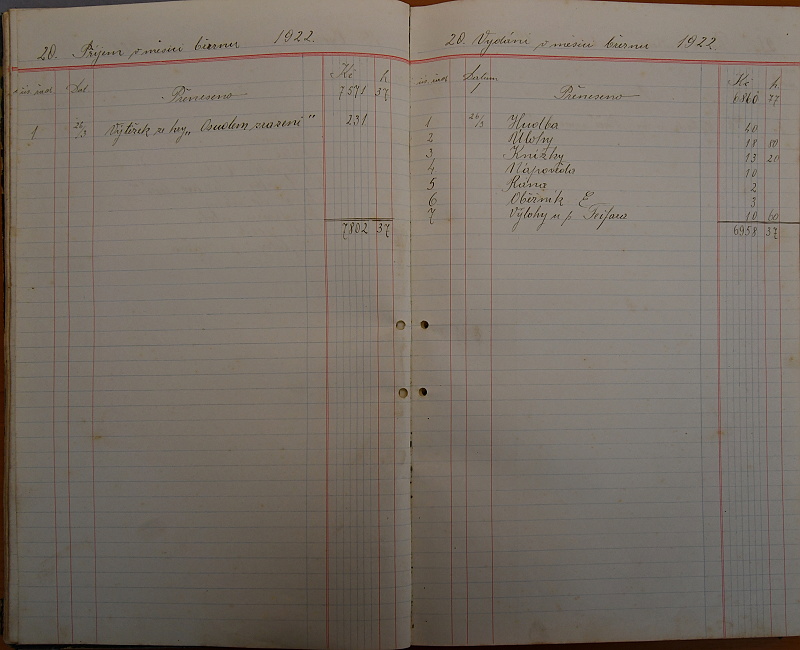 20. Příjem v měsíci březnu 1922.
čís. řad. Dat. Kč h
Přeneseno 7571 37
1 26/3 Výtěžek ze hry „Osudem sraženi" 231
7802 37
20. Vydání v měsíci březnu 1922
čís. řad. Datum Kč h
Přeneseno 6860 77
1 26/3 Hudba 40
2 Úlohy 18 80
3 Knížky 13 20
4 Nápověda 10
5 Kána 2
6 Oběžník E 3
7 Výlohy u p. 10 60
6958 37